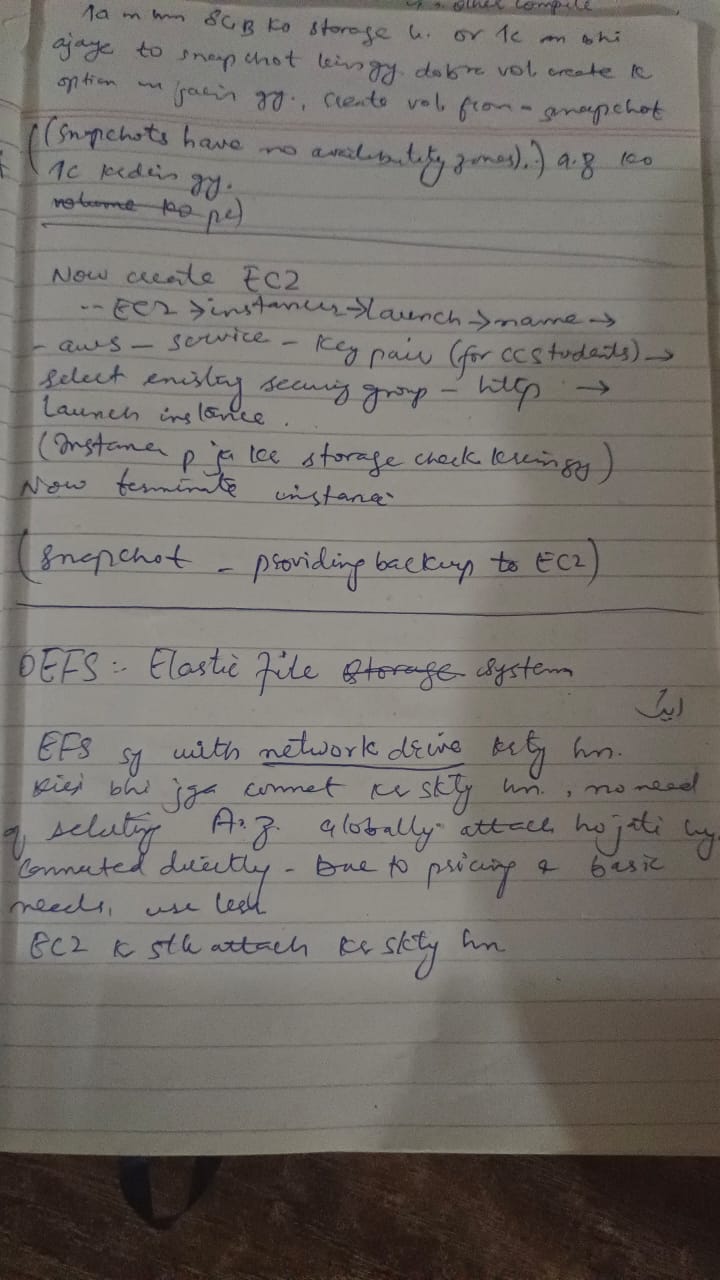 other compile
1a m hm 8GB ko storage h. or 1c m bhi
ajaye to snapchot leingy. dobra vol create k
option m jaein gy., create vol from - snapchot
((Snapchots have no availibility zones).) a.z ko
1c krdein gy.
volume ko pe)
Now create EC2
-- EC2 → instances → launch → name →
- aws - service - key pair (for ccstudents) →
select existing security group - http →
Launch instance.
(Instance p ja ke storage check kreingy)
Now terminate instance.
(Snapchot - providing backup to EC2)
EFS :- Elastic file storage system
EFS sy with network drive krty hn.
kisi bhi jga connet kr skty hn., no need
of seleting A.z. Globally attach ho jati hy.
Connected directly - Due to pricing & basic
needs, use less
EC2 k sth attach kr skty hn